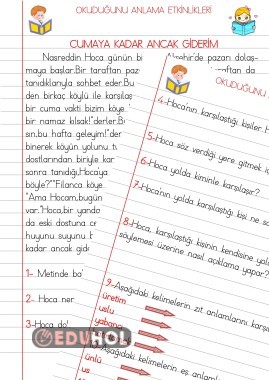 OKUDUĞUNU ANLAMA ETKİNLİKLERİ
CUMAYA KADAR ANCAK GİDERİM
Nasreddin Hoca günün bi
maya başlar.Bir taraftan paz
tanıdıklarıyla sohbet eder.Bu
den birkaç köylü ile karşılaş
bir cuma vakti bizim köye
bir namaz kılsak!"derler.B
sın,bu hafta geleyim!"der
binerek köyün yolunu t
dostlarından biriyle kar
sonra tanıdığı,Hocaya
böyle?""Filanca köye
"Ama Hocam,bugün
var."Hoca,bir yando
da eski dostuna c
huyunu suyunu b
kadar ancak gid
1- Metinde
2- Hoca ner
3-Hoca
Akşehir'de pazarı dolaş-
raftan da
OKUDUĞUNU
4-Hoca'nın karşılaştığı kişiler k
5-Hoca söz verdiği yere gitmek için
6-Hoca yolda kiminle karşılaşır?
7-Hoca'nın yolda karşılaştığı kişi ne so
8-Hoca, karşılaştığı kişinin kendisine yol
söylemesi üzerine nasıl açıklama yapar?
9-Aşağıdaki kelimelerin zıt anlamlarını
üretim
uslu
yabancı
Aşağıdaki kelimelerin eş anlaml
ünlü
us
EDUHOL